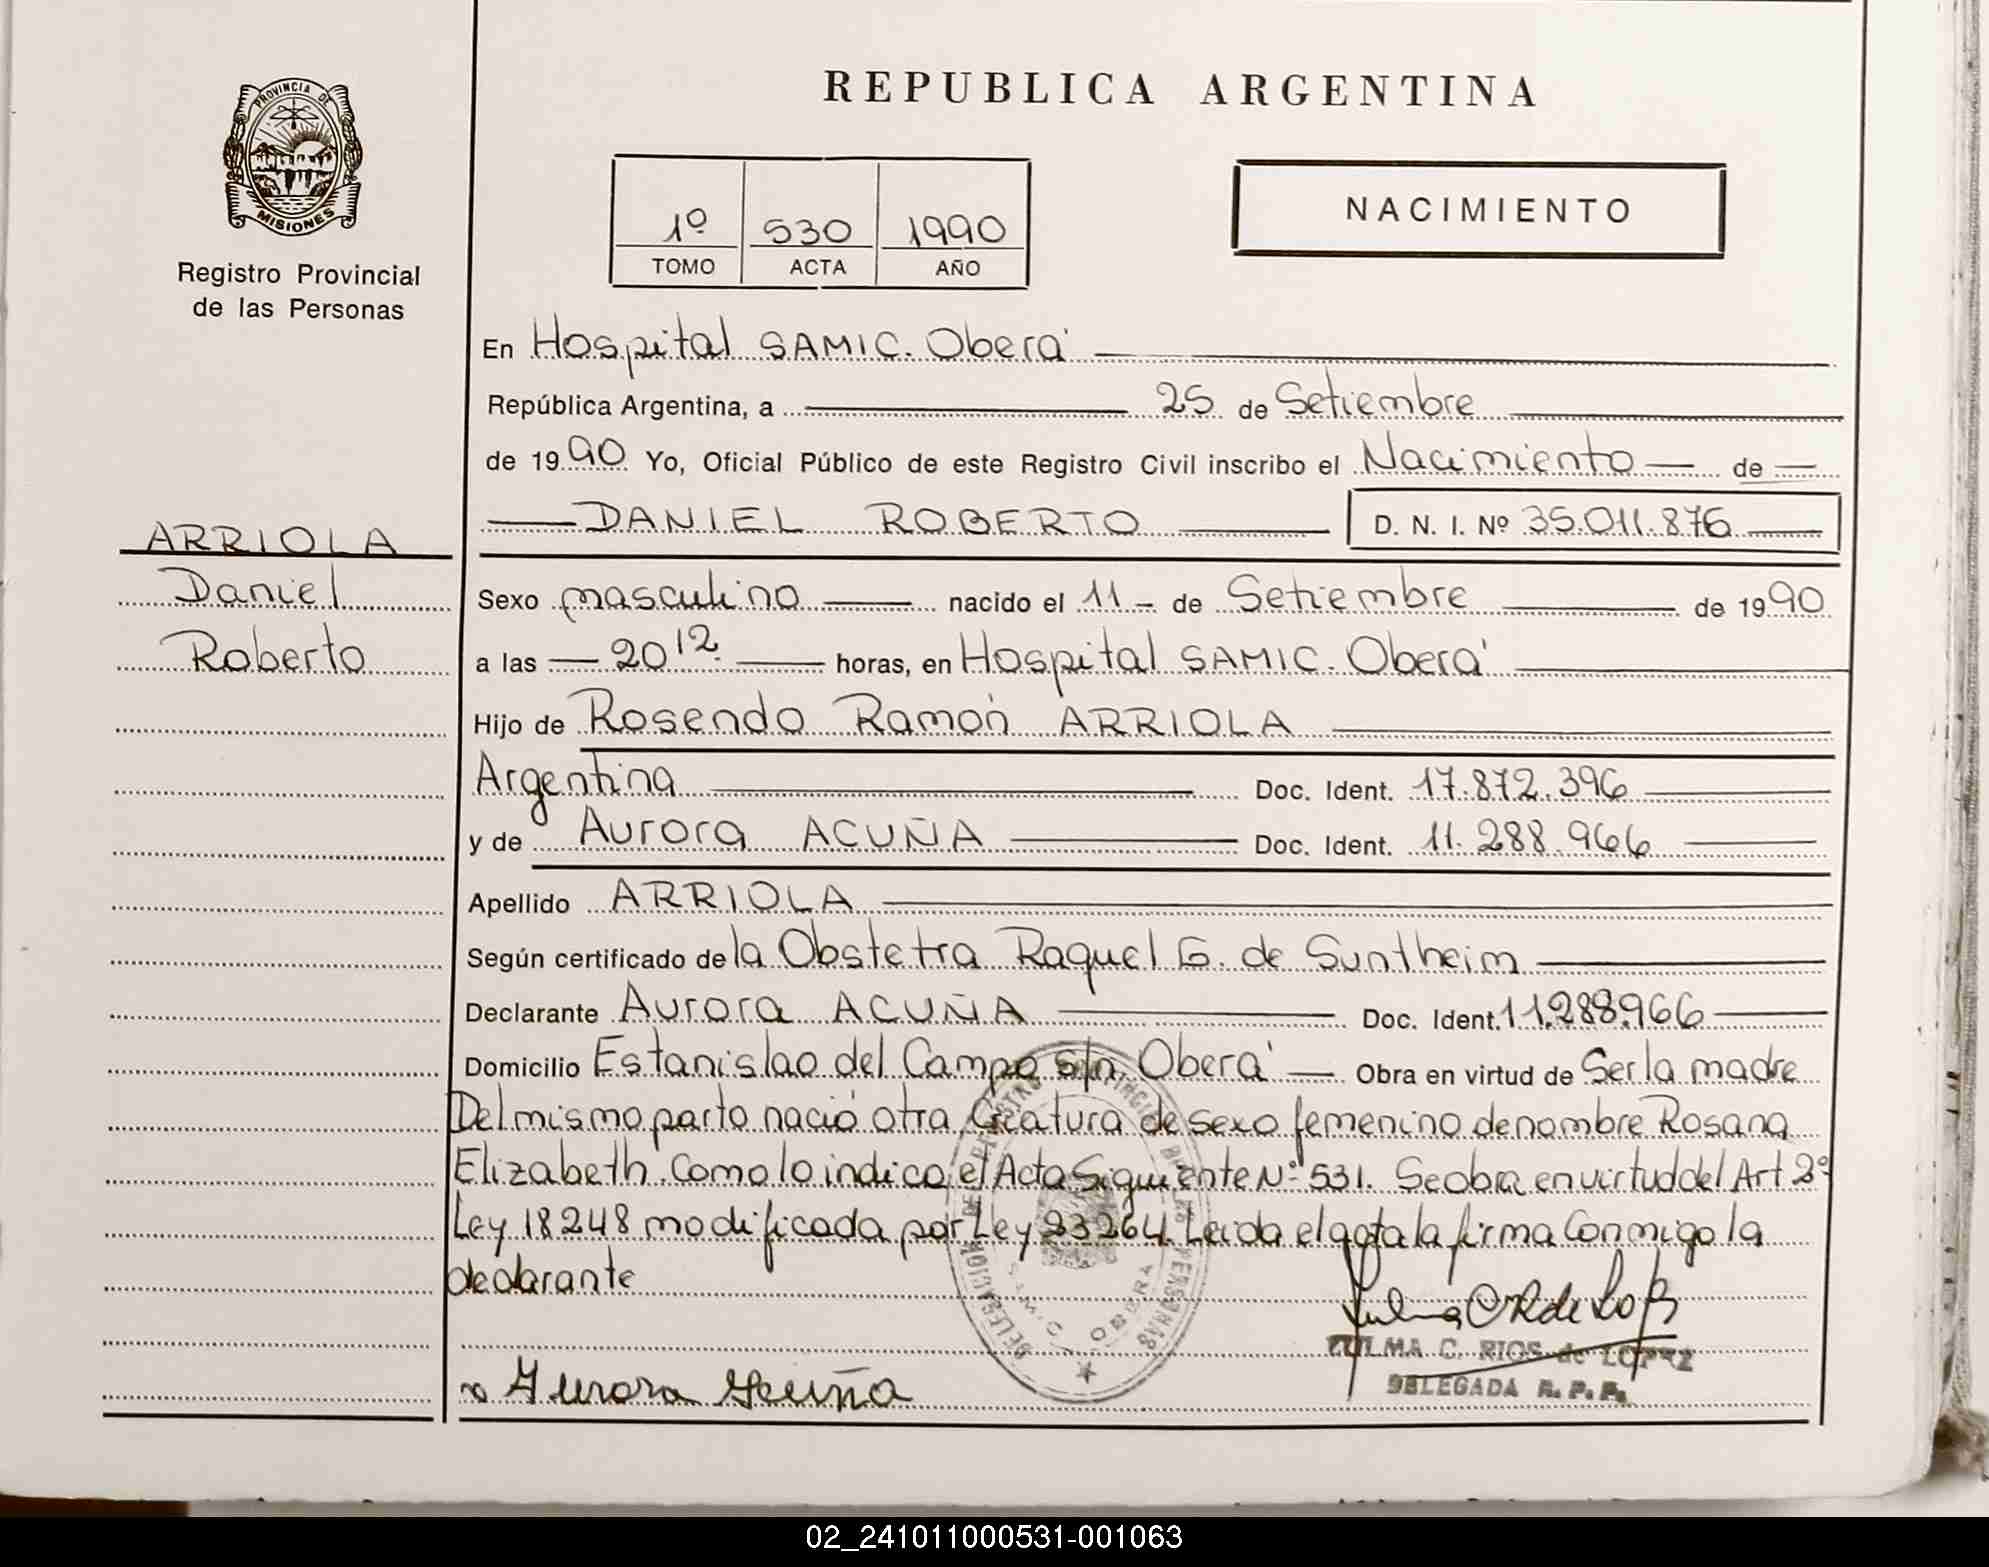 PROVINCIA DE
MISIONES
Registro Provincial
de las Personas
REPUBLICA ARGENTINA
1º 530 1990
TOMO ACTA AÑO
NACIMIENTO
En Hospital SAMIC. Oberá
República Argentina, a 25 de Setiembre
de 1990 Yo, Oficial Público de este Registro Civil inscribo el Nacimiento de
DANIEL ROBERTO D. N. I. Nº 35.011.876
ARRIOLA
Daniel
Roberto
Sexo masculino nacido el 11 - de Setiembre de 1990
a las 20 12. horas, en Hospital SAMIC. Oberá
Hijo de Rosendo Ramón ARRIOLA
Argentina Doc. Ident. 17.872.396
y de Aurora ACUÑA Doc. Ident. 11.288.966
Apellido ARRIOLA
Según certificado de la Obstetra Raquel G. de Suntheim
Declarante Aurora ACUÑA Doc. Ident. 11.288.966
Domicilio Estanislao del Campo s/n Oberá Obra en virtud de Ser la madre
Del mismo parto nació otra Creatura de sexo femenino de nombre Rosana
Elizabeth. Como lo indica el Acta Siguiente Nº 531. Se obra en virtud del Art 2º
Ley 18248 modificada por Ley 23264. Leida el acta la firma Conmigo la
declarante
Aurora Acuña
DELEGACION DE PERSONAS
SAMIC OBERA
ZULMA C. RIOS de LOPEZ
DELEGADA R. P. P.
02_241011000531-001063